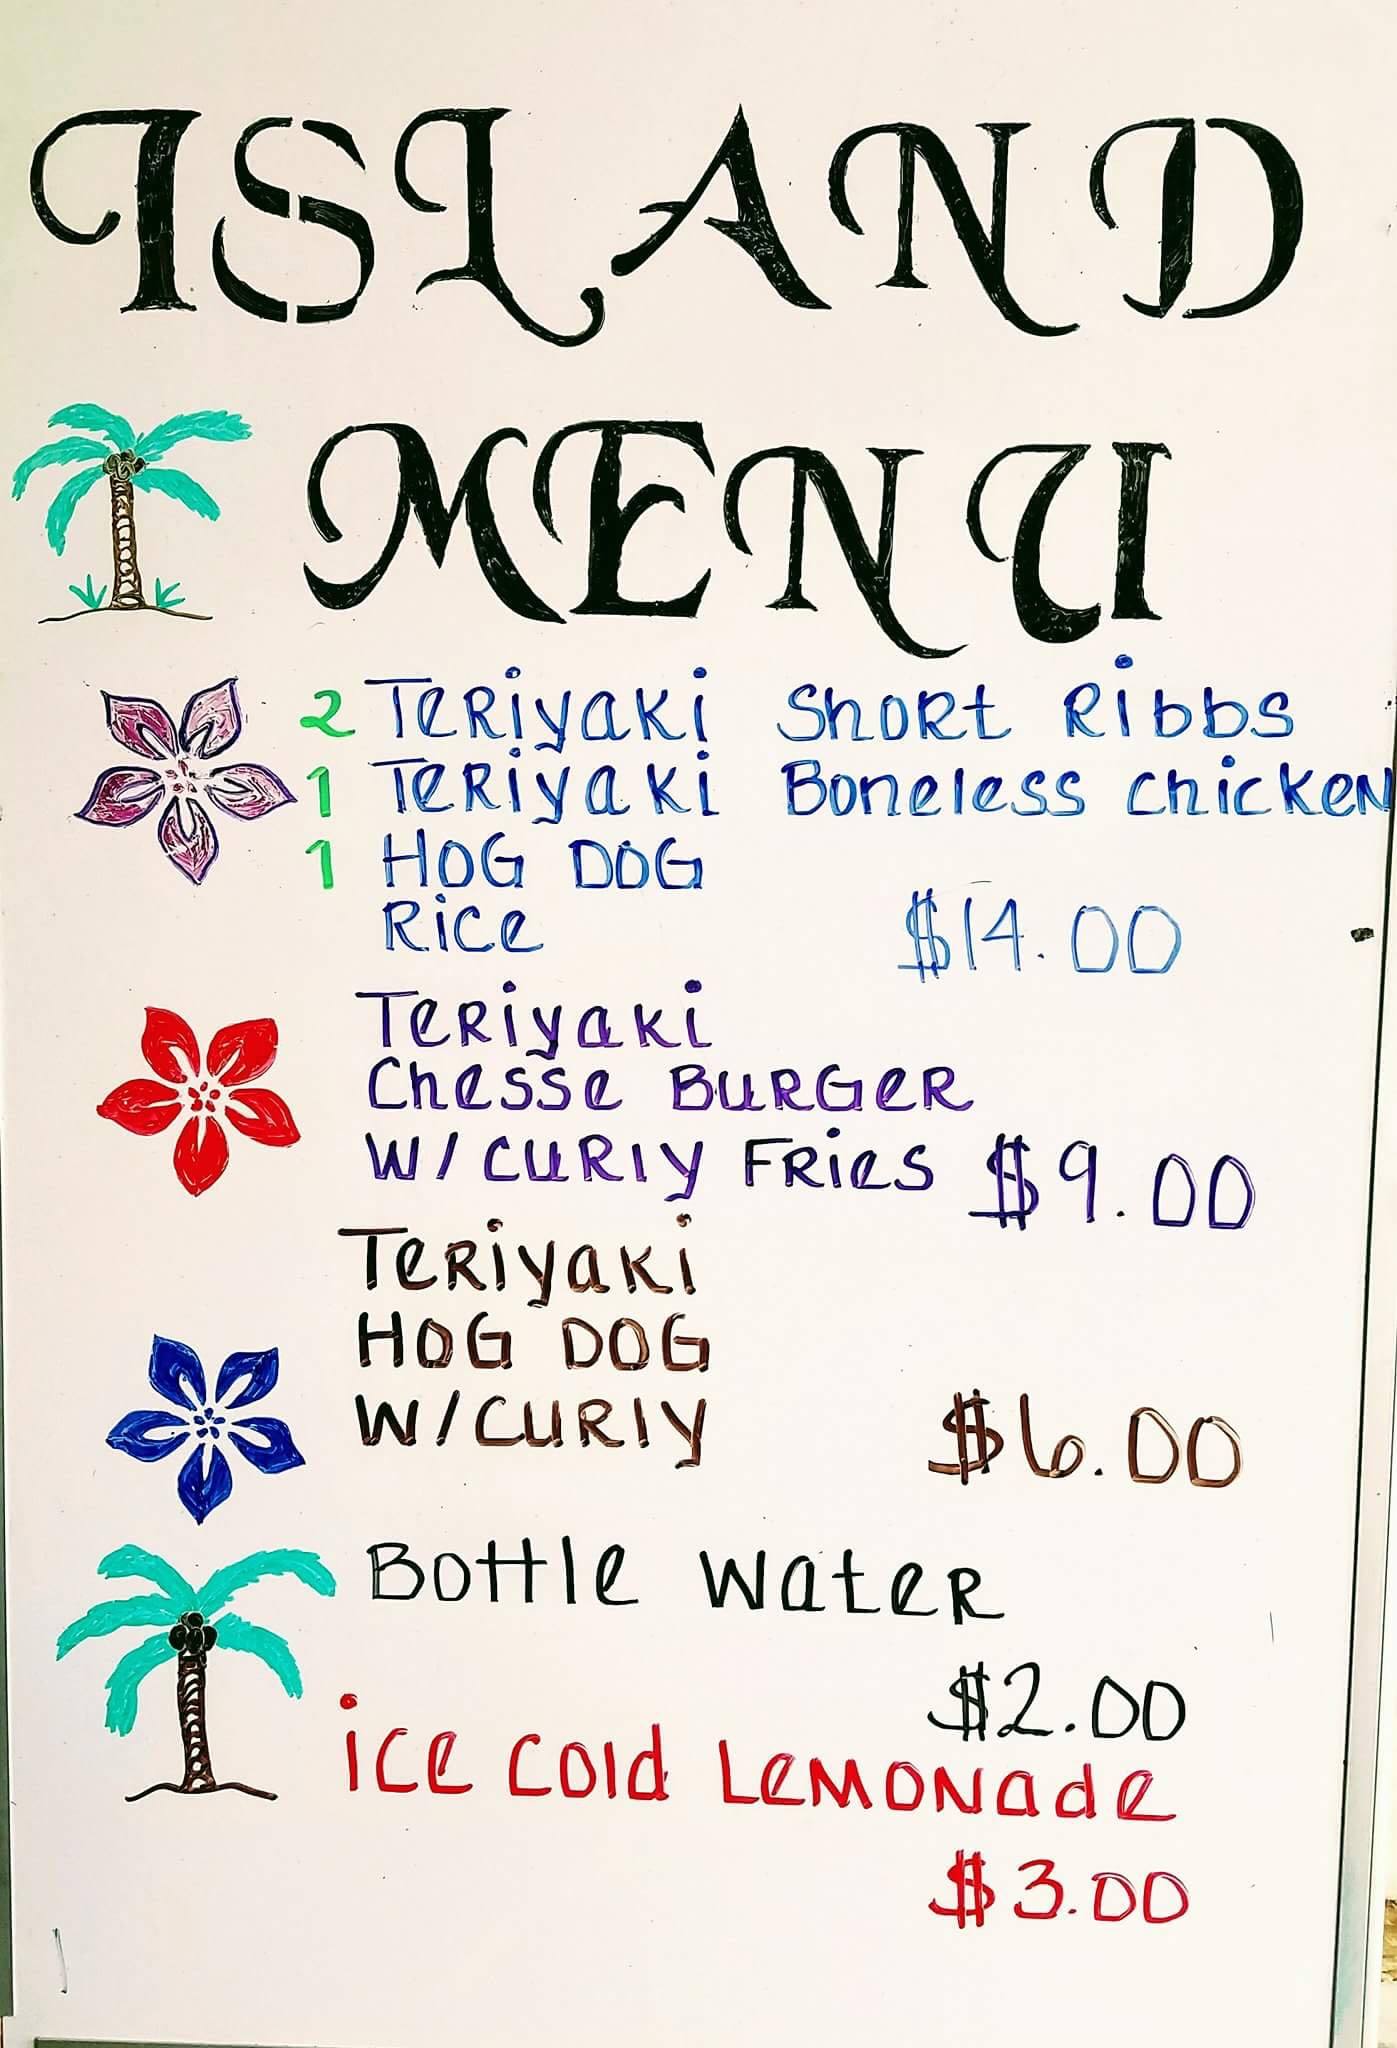 ISLAND
MENU
2 TeRiyaki Short Ribbs
1 TeRiyaki Boneless chicken
1 HOG DOG
Rice $14.00
TeRiyaki
Chesse BURGeR
W/CURly FRies $9.00
TeRiyaki
HOG DOG
W/CURly $6.00
Bottle WateR
$2.00
ice Cold LeMONade
$3.00